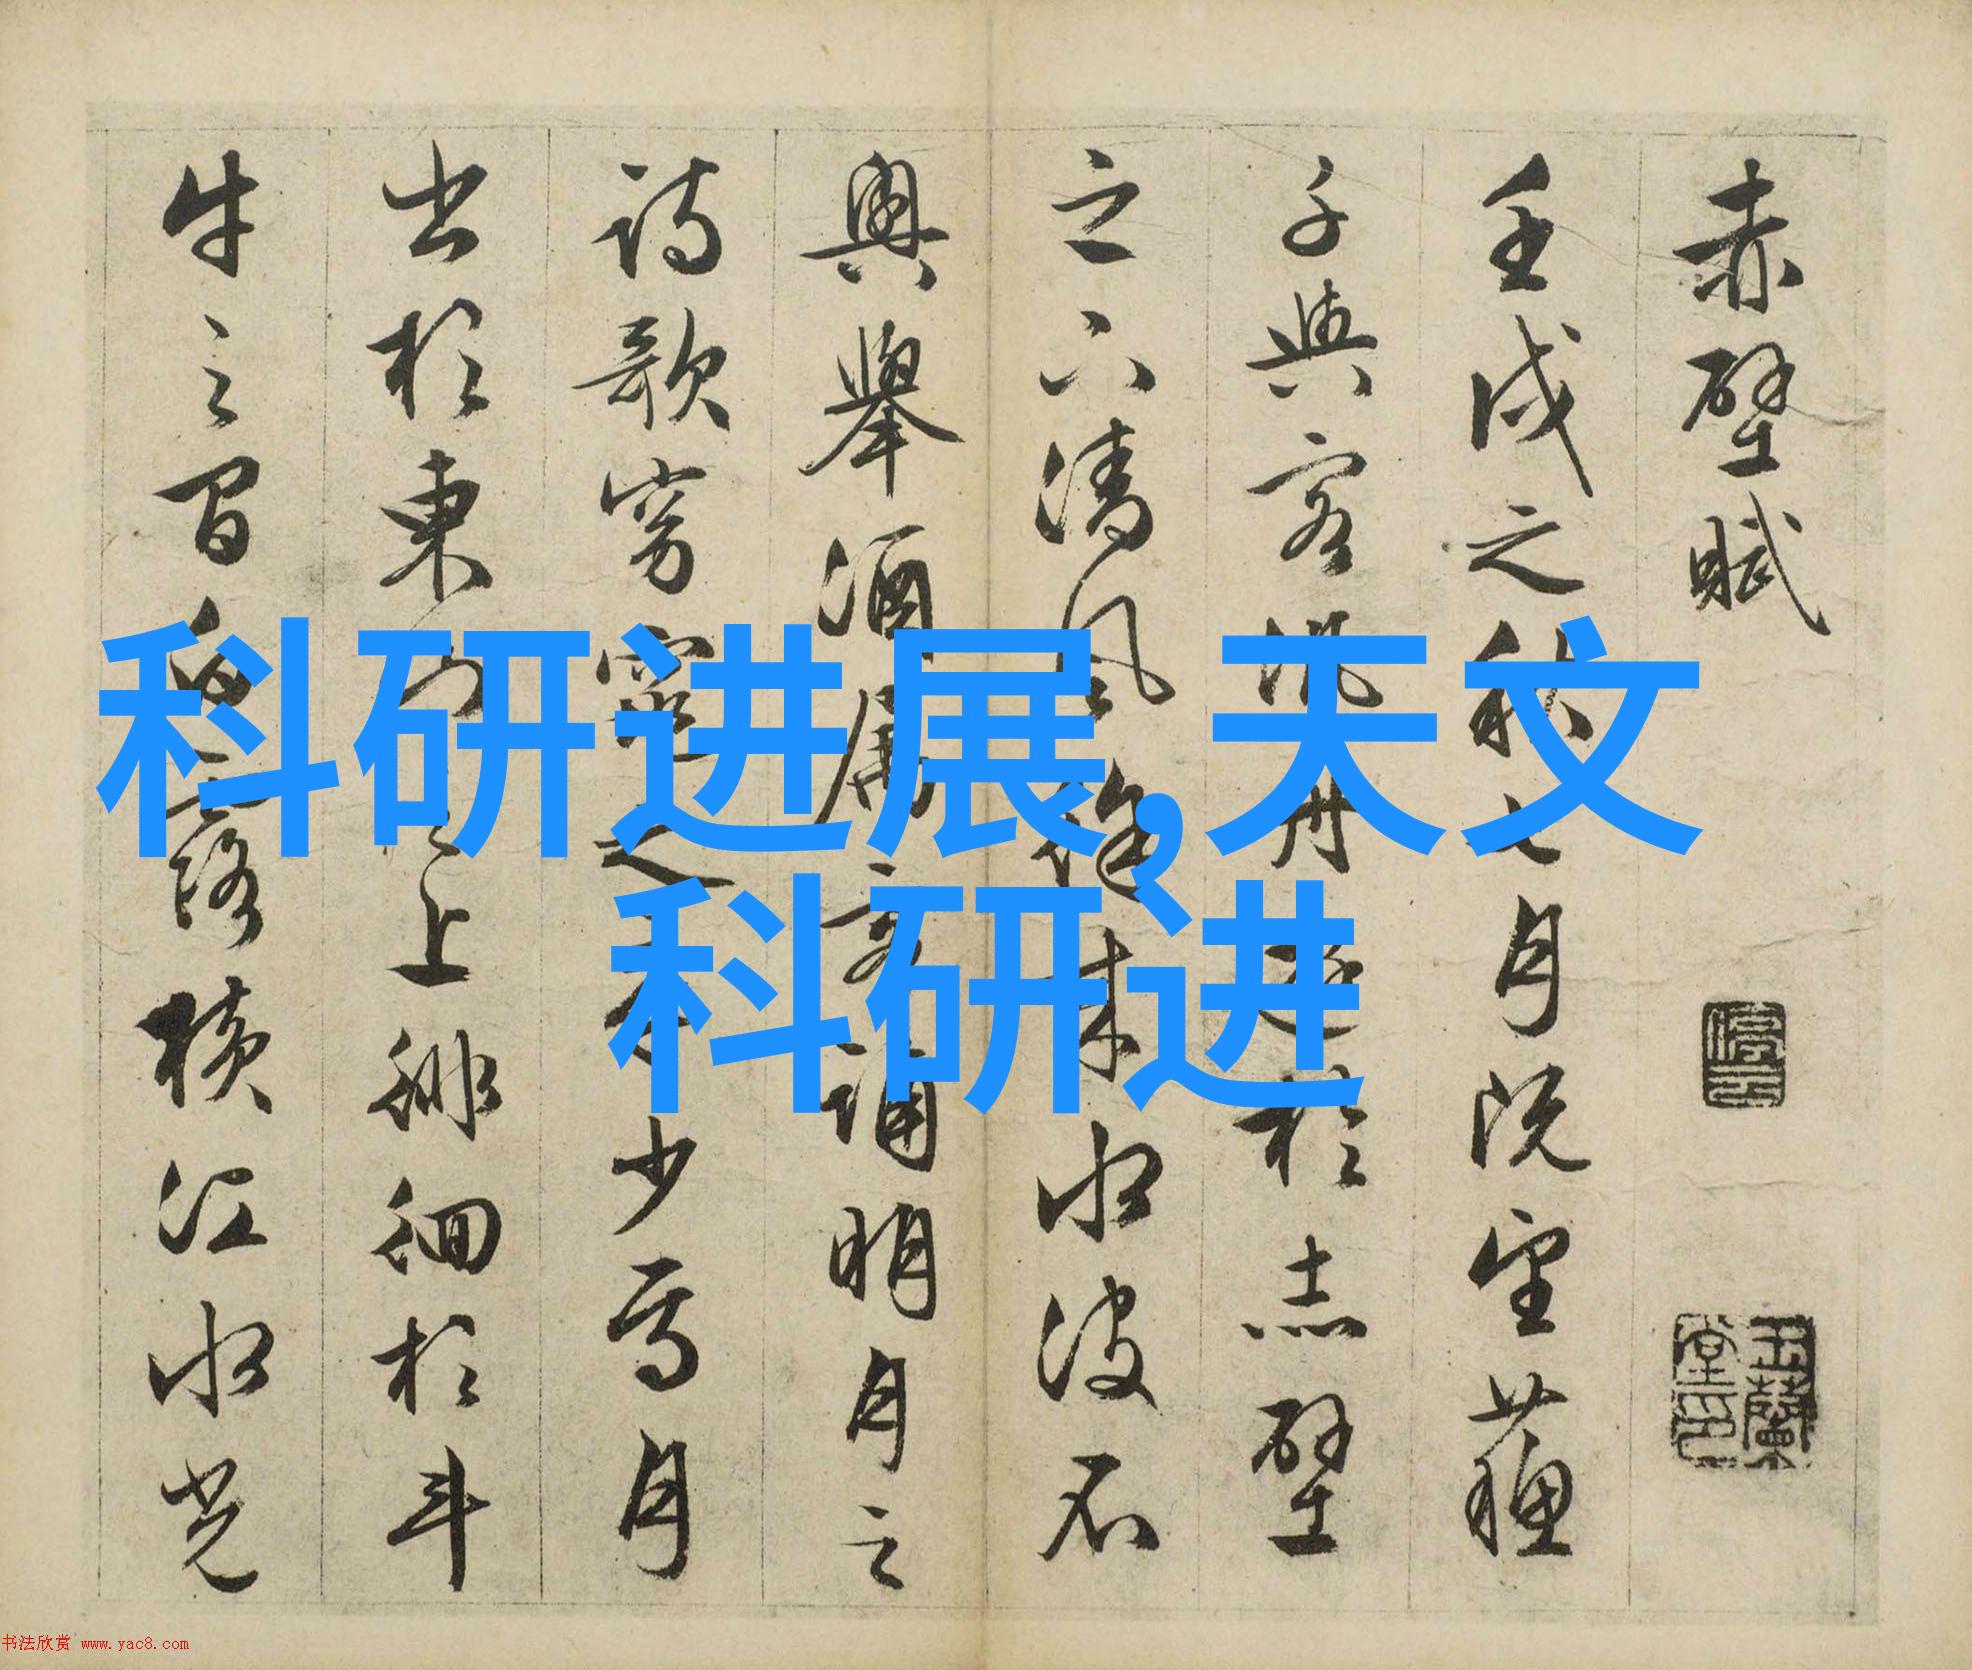 赤壁賦
壬戌之秋七月既望蘇
子與客泛舟遊於赤壁
之下清風徐來水波不
興舉酒屬客誦明月之
詩歌窈窕之章少焉月
出於東山之上徘徊於斗
牛之間白露橫江水光
科研进展,天文
科研进
玉蘭堂印
书法欣赏 www.yac8.com